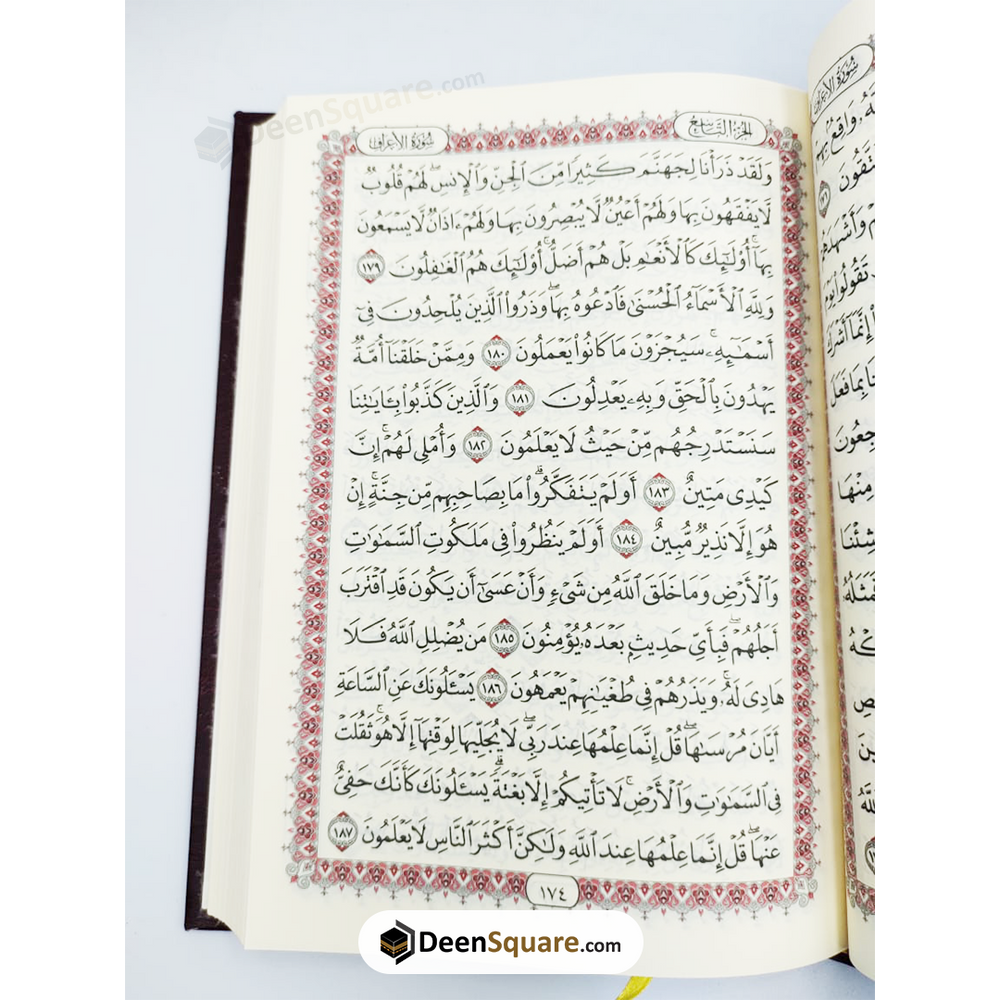 DeenSquare.com
الجزء التاسع
سورة الأعراف
وَلَقَدْ ذَرَأْنَا لِجَهَنَّمَ كَثِيرًا مِّنَ ٱلْجِنِّ وَٱلْإِنسِ ۖ لَهُمْ قُلُوبٌ
لَّا يَفْقَهُونَ بِهَا وَلَهُمْ أَعْيُنٌ لَّا يُبْصِرُونَ بِهَا وَلَهُمْ ءَاذَانٌ لَّا يَسْمَعُونَ
بِهَآ ۚ أُو۟لَـٰٓئِكَ كَٱلْأَنْعَـٰمِ بَلْ هُمْ أَضَلُّ ۚ أُو۟لَـٰٓئِكَ هُمُ ٱلْغَـٰفِلُونَ ١٧٩
وَلِلَّهِ ٱلْأَسْمَآءُ ٱلْحُسْنَىٰ فَٱدْعُوهُ بِهَا ۖ وَذَرُوا۟ ٱلَّذِينَ يُلْحِدُونَ فِىٓ
أَسْمَـٰٓئِهِۦ ۚ سَيُجْزَوْنَ مَا كَانُوا۟ يَعْمَلُونَ ١٨٠ وَمِمَّنْ خَلَقْنَآ أُمَّةٌ
يَهْدُونَ بِٱلْحَقِّ وَبِهِۦ يَعْدِلُونَ ١٨١ وَٱلَّذِينَ كَذَّبُوا۟ بِـَٔايَـٰتِنَا
سَنَسْتَدْرِجُهُم مِّنْ حَيْثُ لَا يَعْلَمُونَ ١٨٢ وَأُمْلِى لَهُمْ ۚ إِنَّ
كَيْدِى مَتِينٌ ١٨٣ أَوَلَمْ يَتَفَكَّرُوا۟ ۗ مَا بِصَاحِبِهِم مِّن جِنَّةٍ ۚ إِنْ
هُوَ إِلَّا نَذِيرٌ مُّبِينٌ ١٨٤ أَوَلَمْ يَنظُرُوا۟ فِى مَلَكُوتِ ٱلسَّمَـٰوَٰتِ
وَٱلْأَرْضِ وَمَا خَلَقَ ٱللَّهُ مِن شَىْءٍ وَأَنْ عَسَىٰٓ أَن يَكُونَ قَدِ ٱقْتَرَبَ
أَجَلُهُمْ ۖ فَبِأَىِّ حَدِيثٍۭ بَعْدَهُۥ يُؤْمِنُونَ ١٨٥ مَن يُضْلِلِ ٱللَّهُ فَلَا
هَادِىَ لَهُۥ ۚ وَيَذَرُهُمْ فِى طُغْيَـٰنِهِمْ يَعْمَهُونَ ١٨٦ يَسْـَٔلُونَكَ عَنِ ٱلسَّاعَةِ
أَيَّانَ مُرْسَىٰهَا ۖ قُلْ إِنَّمَا عِلْمُهَا عِندَ رَبِّى ۖ لَا يُجَلِّيهَا لِوَقْتِهَآ إِلَّا هُوَ ۚ ثَقُلَتْ
فِى ٱلسَّمَـٰوَٰتِ وَٱلْأَرْضِ ۚ لَا تَأْتِيكُمْ إِلَّا بَغْتَةً ۗ يَسْـَٔلُونَكَ كَأَنَّكَ حَفِىٌّ
عَنْهَا ۖ قُلْ إِنَّمَا عِلْمُهَا عِندَ ٱللَّهِ وَلَـٰكِنَّ أَكْثَرَ ٱلنَّاسِ لَا يَعْلَمُونَ ١٨٧
١٧٤
سورة الأعراف
وَاقِعٌۢ بِهِمْ
تَتَّقُونَ
وَأَشْهَدَهُمْ
تَقُولُوا۟ يَوْمَ
إِنَّمَآ أَشْرَكَ
بِمَا فَعَلَ
مِنْهَا
شِئْنَا
فَمَثَلُهُۥ
DeenSquare.com